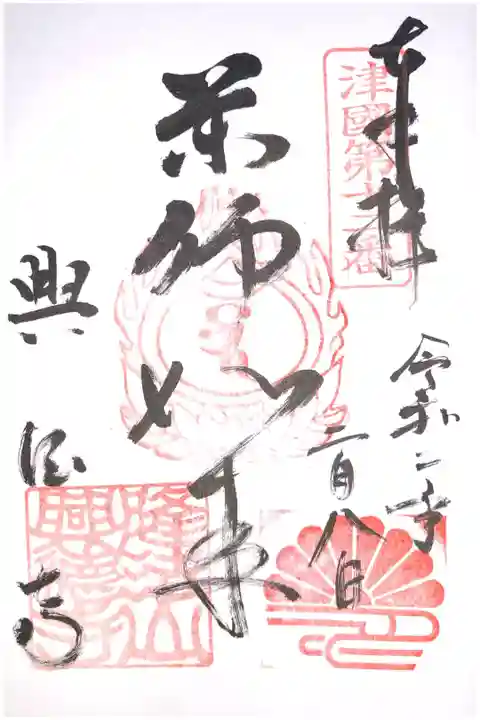 奉拝
津國第十三番
令和二年
二月八日
薬師如来
興徳寺